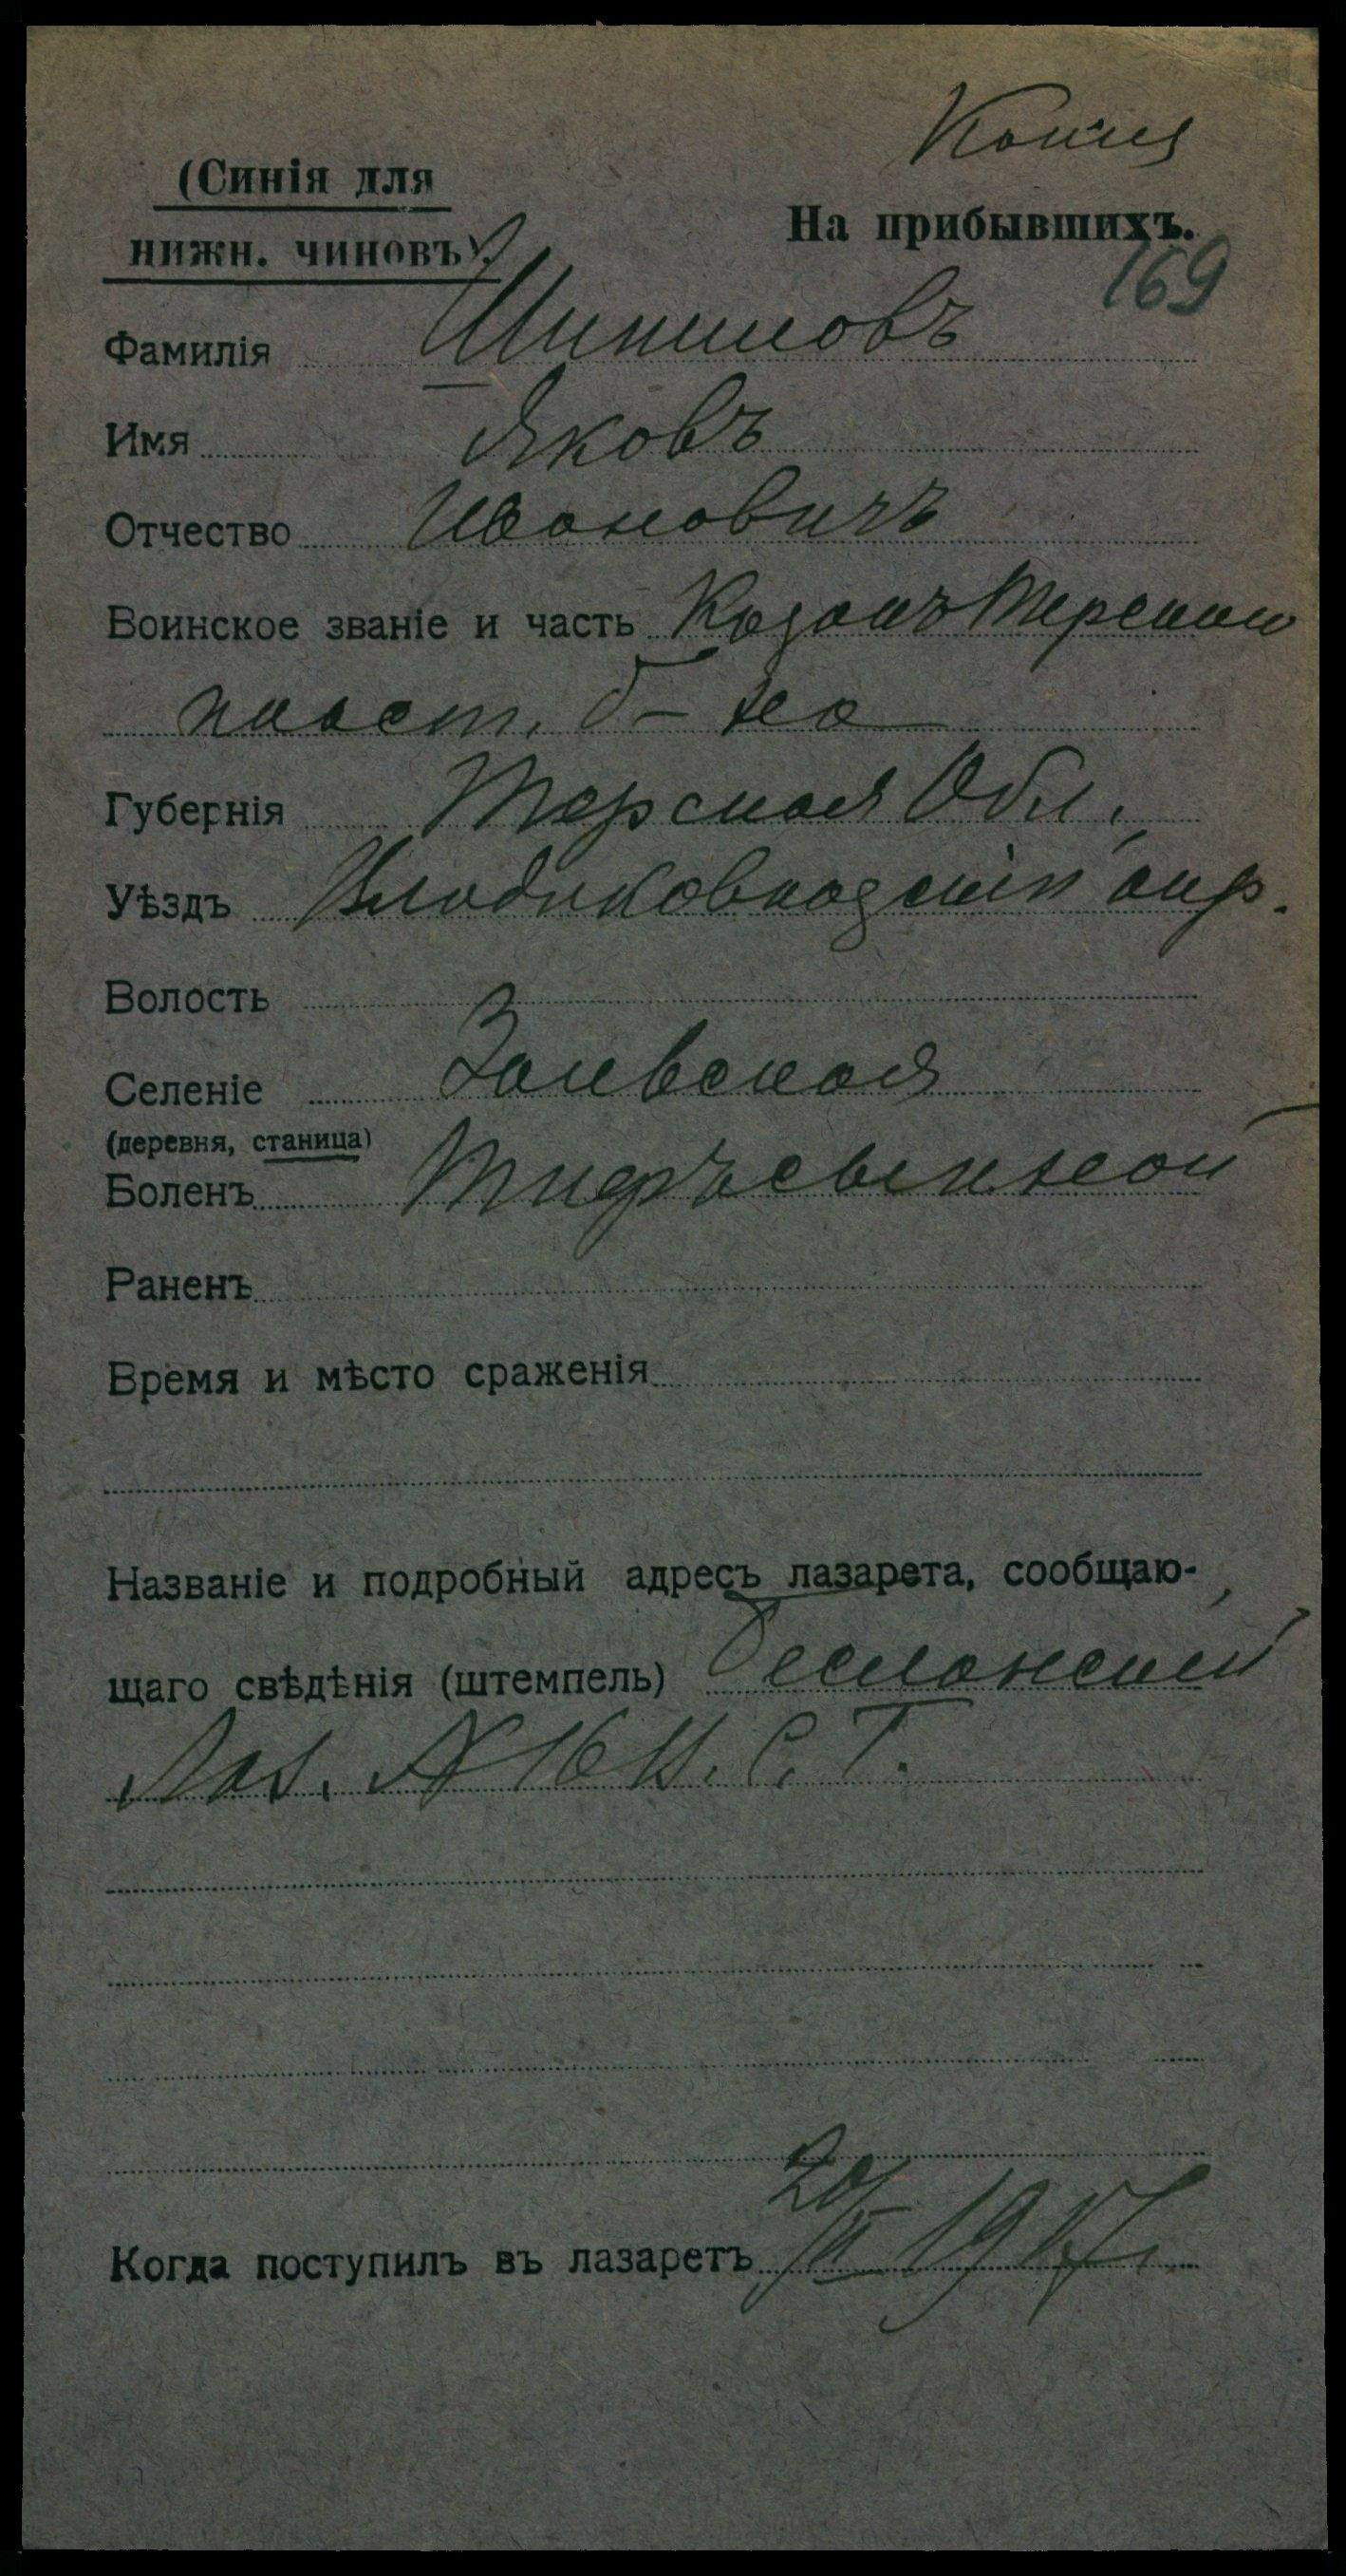 Копия
(Синія для
нижн. чиновъ).
На прибывшихъ.
169
Фамилія Шипиловъ
Имя Яковъ
Отчество Ивановичъ
Воинское званіе и часть Казакъ Терскаго
пласт. б-на
Губернія Терская Обл.
Уѣздъ Владикавказскій окр.
Волость
Селеніе
(деревня, станица)
Боленъ
Раненъ
Время и мѣсто сраженія
Названіе и подробный адресъ лазарета, сообщаю-
щаго свѣдѣнія (штемпель) Бесланскій
Лаз. № 16 В. С. Г.
Когда поступилъ въ лазаретъ 20/ 1917